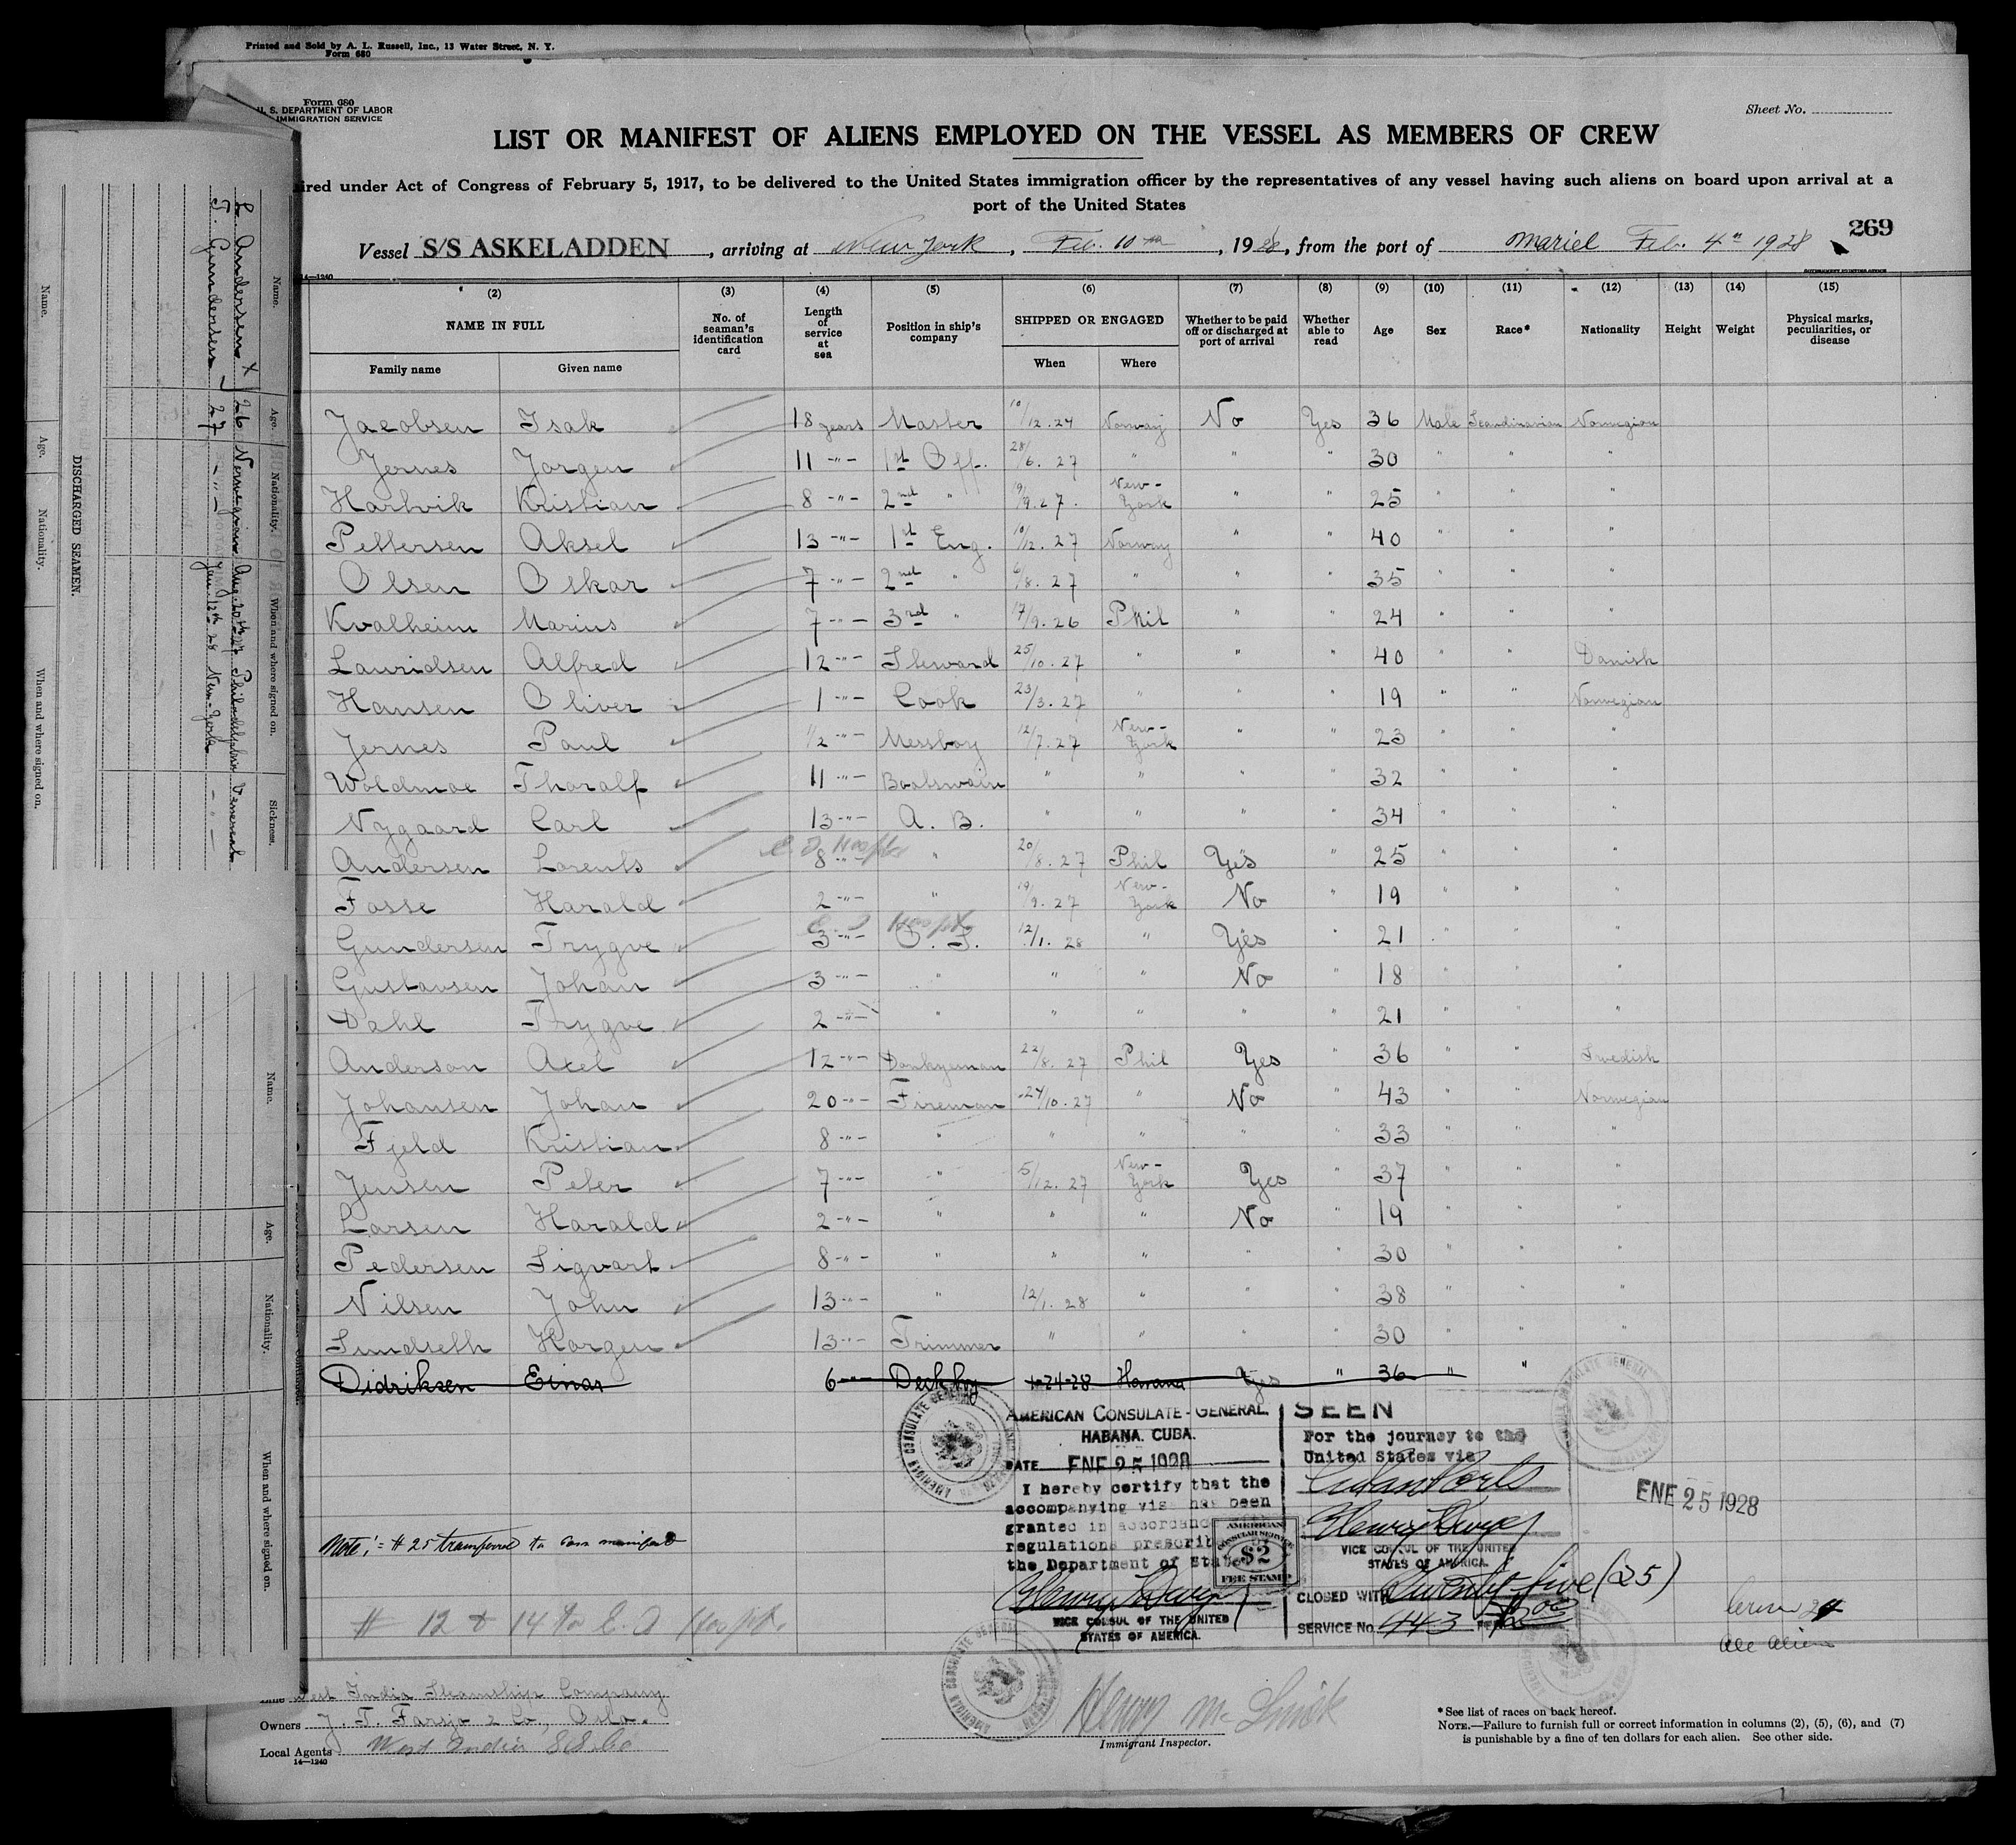 Printed and Sold by A. L. Russell, Inc., 13 Water Street, N. Y.
Form 680
Form 680
U. S. DEPARTMENT OF LABOR
IMMIGRATION SERVICE
Sheet No.
LIST OR MANIFEST OF ALIENS EMPLOYED ON THE VESSEL AS MEMBERS OF CREW
ired under Act of Congress of February 5, 1917, to be delivered to the United States immigration officer by the representatives of any vessel having such aliens on board upon arrival at a
port of the United States
269
Vessel S/S ASKELADDEN, arriving at New York, Feb. 10th, 1928, from the port of Mariel Feb. 4th 1928
14—1240
(2) (3) (4) (5) (6) (7) (8) (9) (10) (11) (12) (13) (14) (15)
NAME IN FULL
Family name Given name
No. of seaman's identification card
Length of service at sea
Position in ship's company
SHIPPED OR ENGAGED
When Where
Whether to be paid off or discharged at port of arrival
Whether able to read
Age Sex Race* Nationality Height Weight
Physical marks, peculiarities, or disease
Jacobsen Isak 18 years Master 10/12.24 Norway No Yes 36 Male Scandinavian Norwegian
Jernes Jorgen 11 -"- 1st Off. 28/6.27 " " " 30 " " "
Hartvik Kristian 8 -"- 2nd " 19/9.27. New-York " " 25 " " "
Pettersen Aksel 13 -"- 1st Eng. 10/12.27 Norway " " 40 " " "
Olsen Oskar 7 -"- 2nd " 6/8.27 " " " 35 " " "
Kvalheim Marius 7 -"- 3rd " 17/9.26 Phil " " 24 " " "
Lauridsen Alfred 12 -"- Steward 25/10.27 " " " 40 " " Danish
Hansen Oliver 1 -"- Cook 23/3.27 " " " 19 " " Norwegian
Jernes Paul 1/2 -"- Messboy 12/7.27 New-York " " 23 " " "
Woldmoe Tharalf 11 -"- Boatswain " " " " 32 " " "
Nygaard Carl 13 -"- A. B. " " " " 34 " " "
Andersen Lorents 8 -"- " 20/8.27 Phil Yes " 25 " " "
Fosse Harald 2 -"- " 19/9.27 New-York No " 19 " " "
Gundersen Trygve 3 -"- O. S. 12/1.28 " Yes " 21 " " "
Gustavsen Johan 3 -"- " " " No " 18 " " "
Dahl Trygve 2 -"- " " " " " 21 " " "
Anderson Axel 12 -"- Donkeyman 22/8.27 Phil Yes " 36 " " Swedish
Johansen Johan 20 -"- Fireman 24/10.27 " No " 43 " " Norwegian
Fjeld Kristian 8 -"- " " " " " 33 " " "
Jensen Peter 7 -"- " 5/12.27 New-York Yes " 37 " " "
Larsen Harald 2 -"- " " " No " 19 " " "
Pedersen Sigvart 8 -"- " " " " " 30 " " "
Nilsen John 13 -"- " 12/1.28 " " " 38 " " "
Sundseth Horgen 13 -"- Trimmer " " " " 30 " " "
Didriksen Einar 6 -"- Deckboy 1-24-28 Havana Yes " 36 " "
AMERICAN CONSULATE-GENERAL
HABANA, CUBA.
DATE ENE 25 1928
I hereby certify that the
accompanying visa has been
granted in accordance
regulations prescribed
the Department of State
VICE CONSUL OF THE UNITED
STATES OF AMERICA.
AMERICAN
CONSULAR SERVICE
$2
FEE STAMP
SEEN
For the journey to the
United States via
Cuban Ports
VICE CONSUL OF THE UNITED
STATES OF AMERICA.
CLOSED WITH Twenty five (25)
SERVICE No. 443
ENE 25 1928
Note:= #25 transferred to own manifest
# 12 & 14 to E. I. Hospt.
Crew 24
all alien
Line West India Steamship Company
Owners J. T. Farsjo & Co., Oslo.
Local Agents West India S.S. Co
14—1240
Immigrant Inspector.
*See list of races on back hereof.
NOTE.—Failure to furnish full or correct information in columns (2), (5), (6), and (7)
is punishable by a fine of ten dollars for each alien. See other side.
DISCHARGED SEAMEN.
Name. Age. Nationality. When and where signed on. Sickness.
L Andersen x 26 Norwegian Aug. 20th 27 Philadelphia Venereal
T. Gundersen 27 -"- Jan. 12th 28 New-York -"-
Name. Age. Nationality. When and where signed on.
Name. Age. Nationality. When and where signed on.